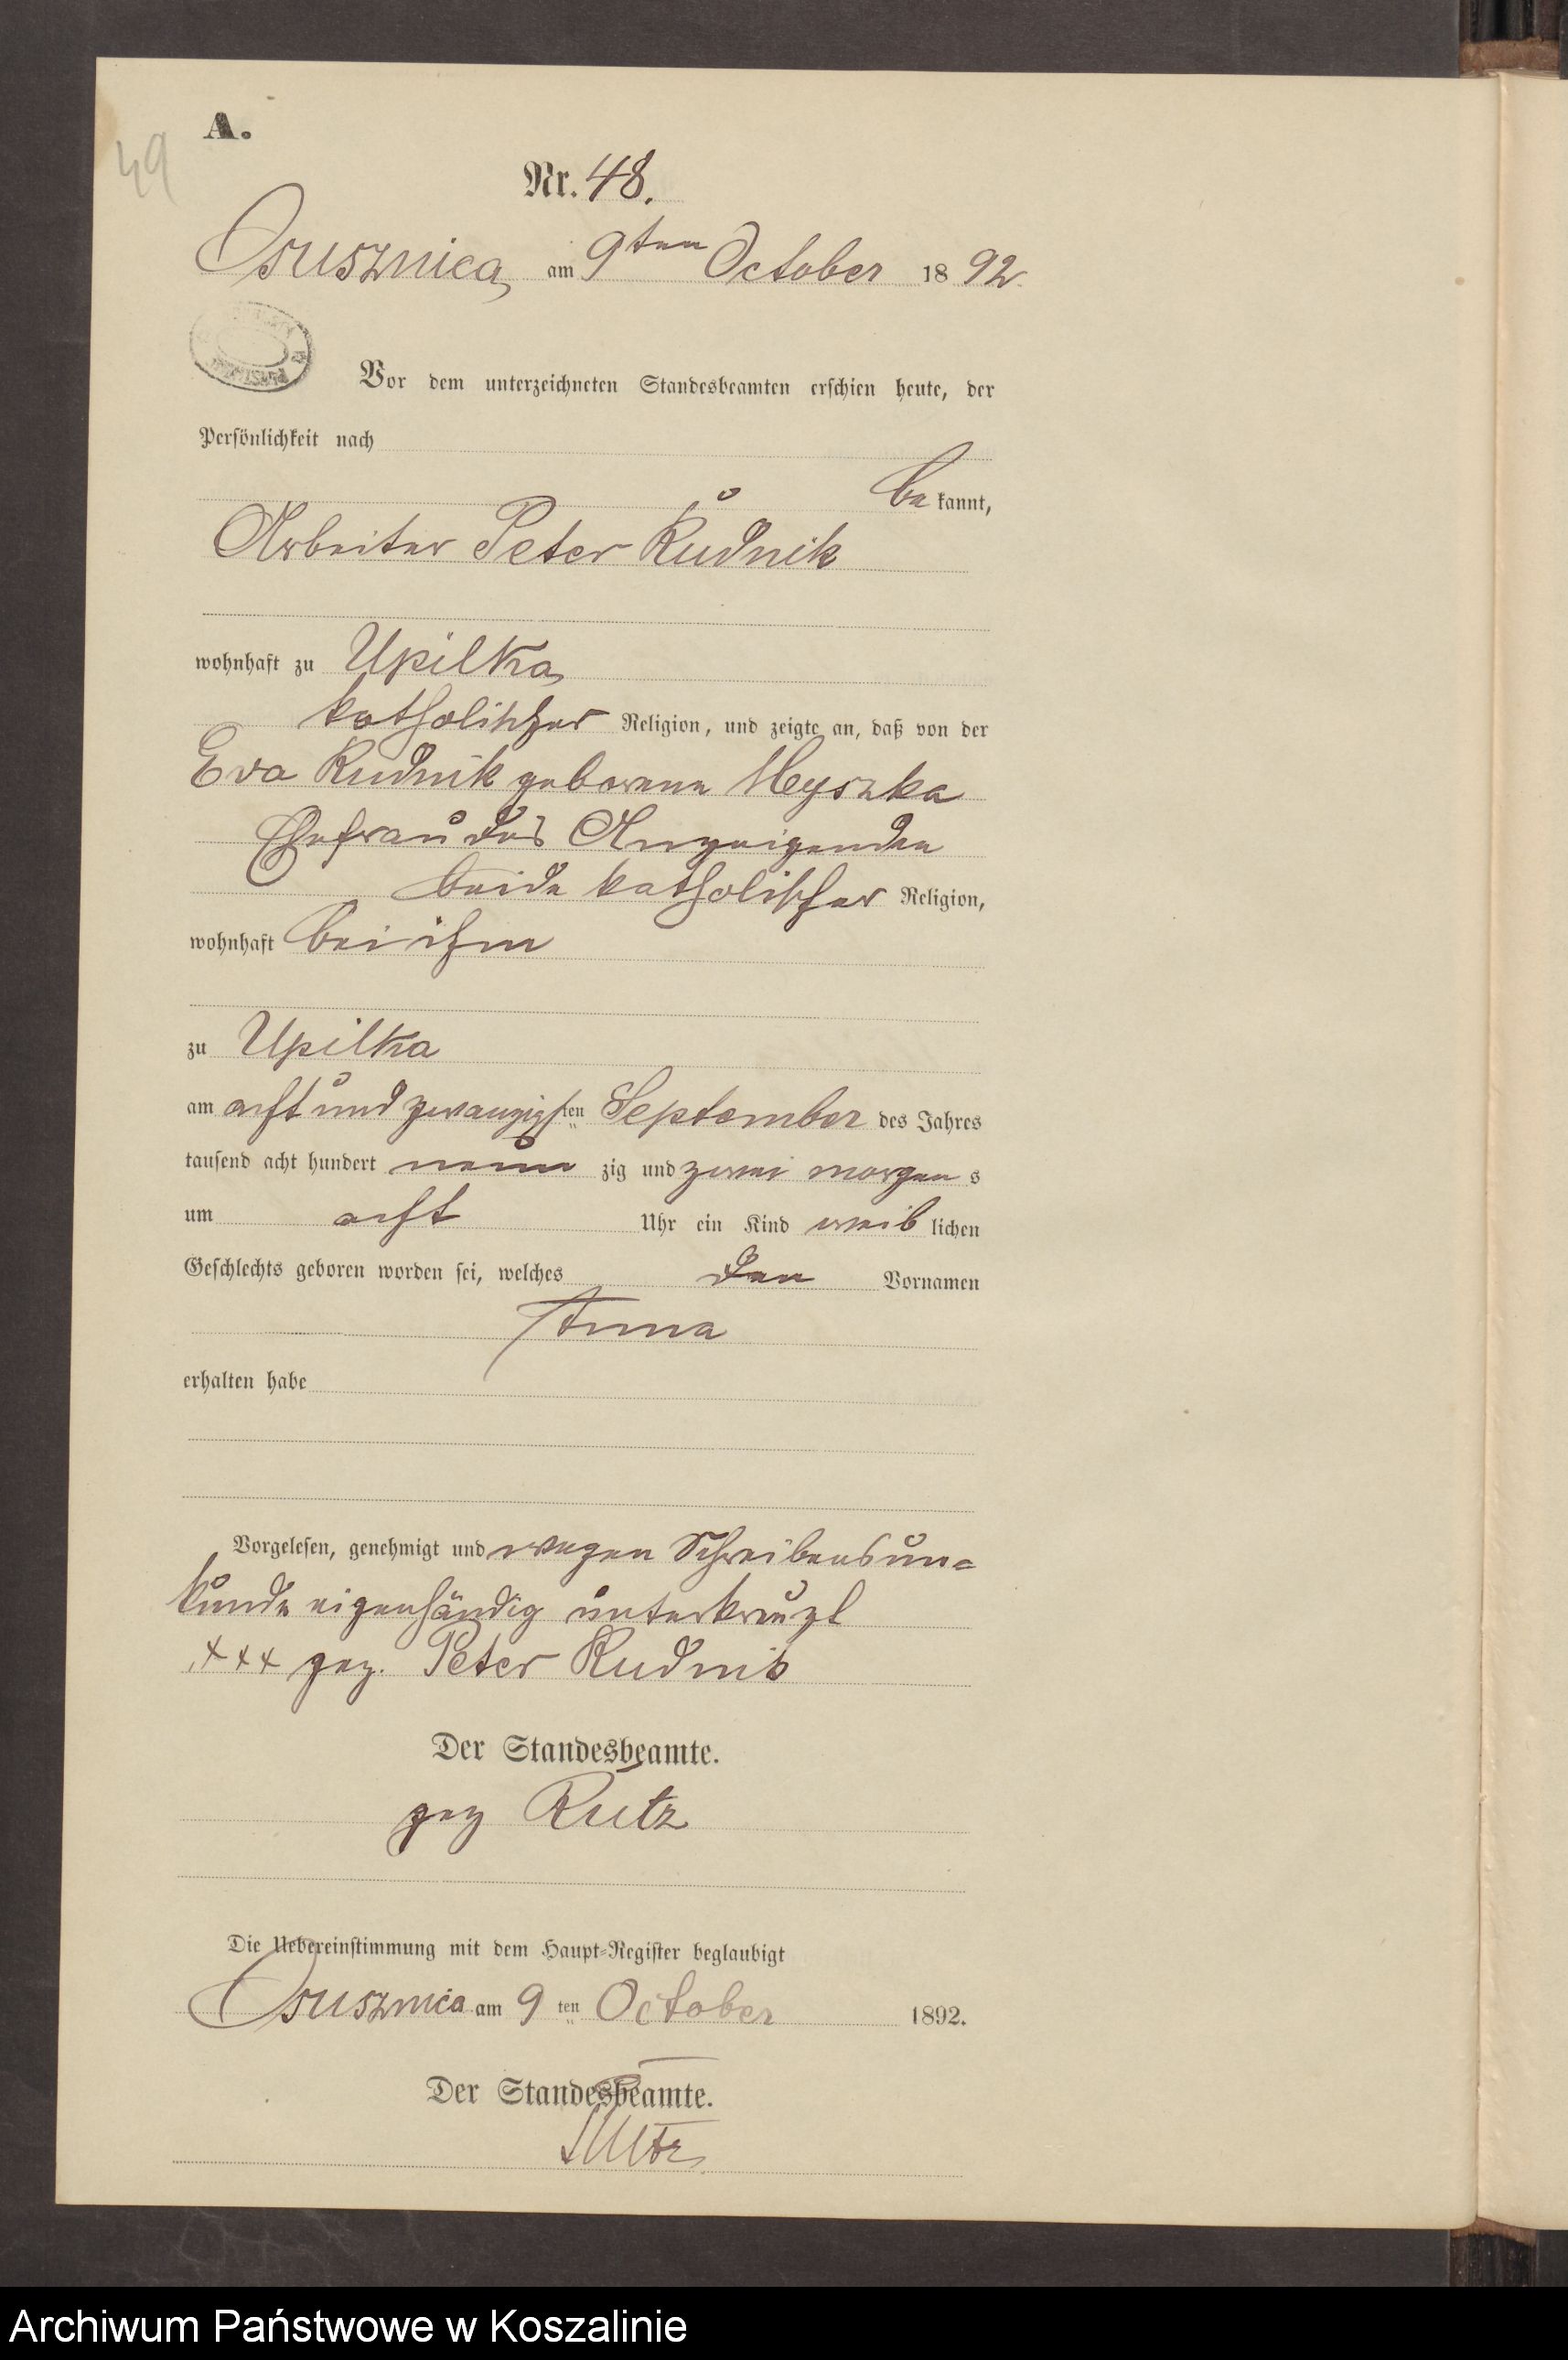 49
A.
Nr. 48.
Osusznica, am 9ten October 1892.
Vor dem unterzeichneten Standesbeamten erschien heute, der
Persönlichkeit nach
be kannt,
Arbeiter Peter Rudnik
wohnhaft zu Upilka,
katholischer Religion, und zeigte an, daß von der
Eva Rudnik geborene Myszka
Ehefrau des Anzeigenden
beide katholischer Religion,
wohnhaft bei ihm
zu Upilka
am acht und zwanzigsten September des Jahres
tausend acht hundert neun zig und zwei morgen s
um acht Uhr ein Kind weib lichen
Geschlechts geboren worden sei, welches den Vornamen
Anna
erhalten habe
Vorgelesen, genehmigt und wegen Schreibensun=
kunde eigenhändig unterkreuzt
+++ gez. Peter Rudnik
Der Standesbeamte.
gez Rutz
Die Uebereinstimmung mit dem Haupt-Register beglaubigt
Osusznica am 9 ten October 1892.
Der Standesbeamte.
Rutz.
Archiwum Państwowe w Koszalinie